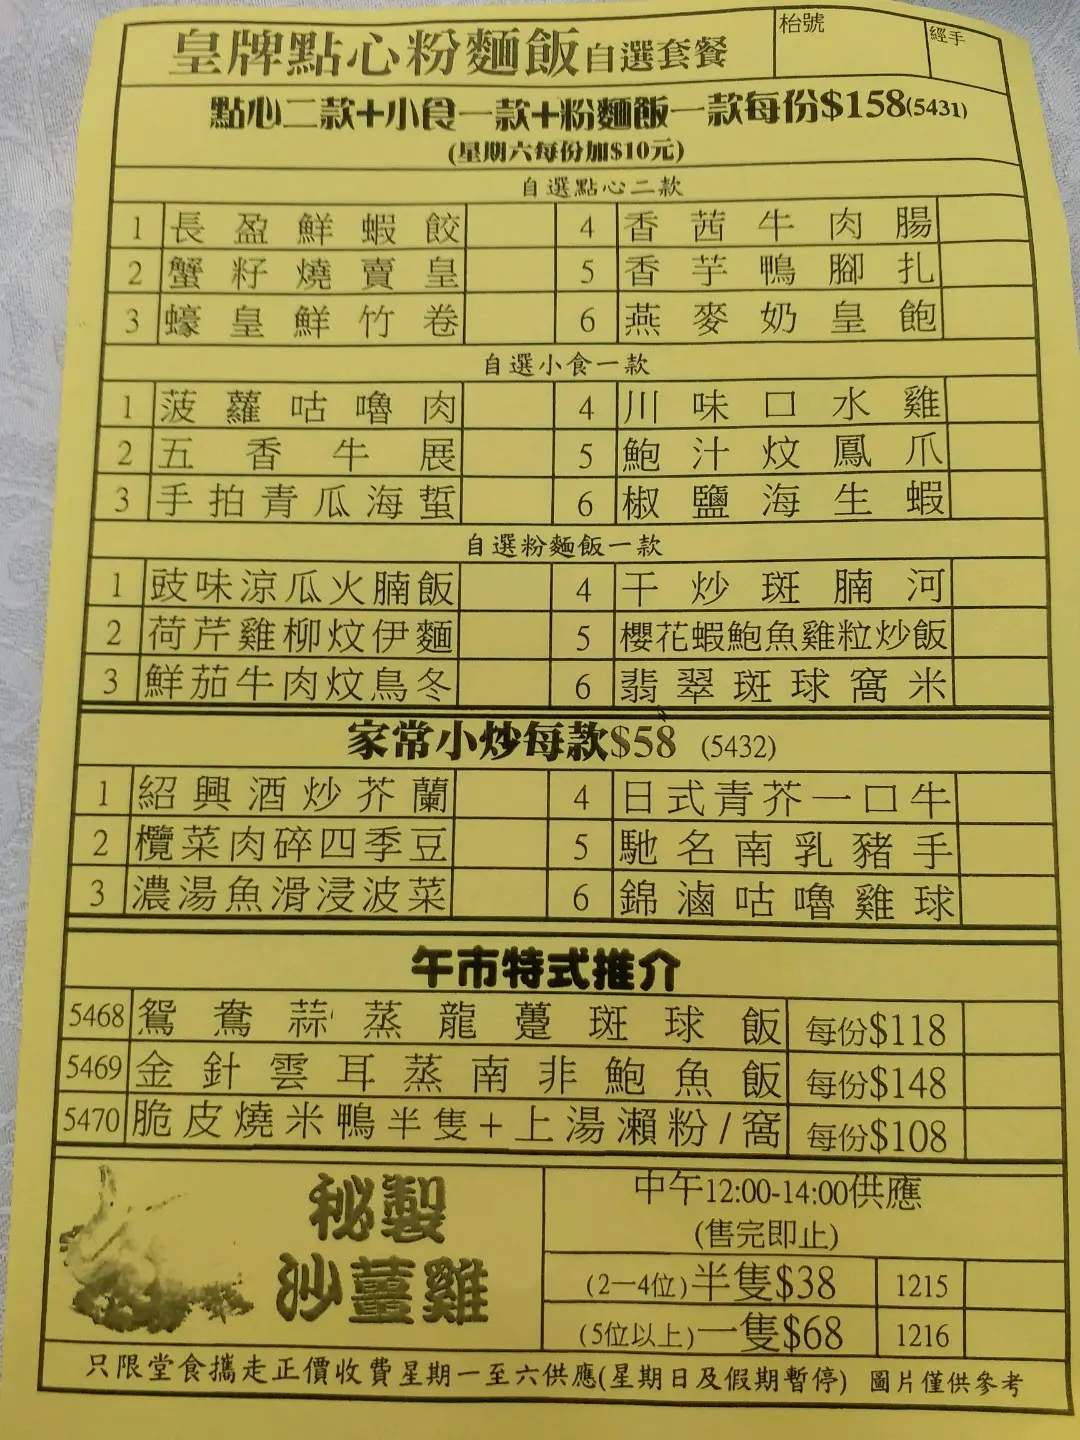 皇牌點心粉麵飯自選套餐
枱號
經手
點心二款+小食一款+粉麵飯一款每份$158(5431)
(星期六每份加$10元)
自選點心二款
1 長盈鮮蝦餃 4 香茜牛肉腸
2 蟹籽燒賣皇 5 香芋鴨腳扎
3 蠔皇鮮竹卷 6 燕麥奶皇飽
自選小食一款
1 菠蘿咕嚕肉 4 川味口水雞
2 五香牛展 5 鮑汁炆鳳爪
3 手拍青瓜海蜇 6 椒鹽海生蝦
自選粉麵飯一款
1 豉味涼瓜火腩飯 4 干炒斑腩河
2 荷芹雞柳炆伊麵 5 櫻花蝦鮑魚雞粒炒飯
3 鮮茄牛肉炆烏冬 6 翡翠斑球窩米
家常小炒每款$58 (5432)
1 紹興酒炒芥蘭 4 日式青芥一口牛
2 欖菜肉碎四季豆 5 馳名南乳豬手
3 濃湯魚滑浸波菜 6 錦滷咕嚕雞球
午市特式推介
5468 鴛鴦蒜蒸龍躉斑球飯 每份$118
5469 金針雲耳蒸南非鮑魚飯 每份$148
5470 脆皮燒米鴨半隻+上湯瀨粉/窩 每份$108
秘製
沙薑雞
中午12:00-14:00供應
(售完即止)
(2一4位)半隻$38 1215
(5位以上)一隻$68 1216
只限堂食攜走正價收費星期一至六供應(星期日及假期暫停) 圖片僅供參考